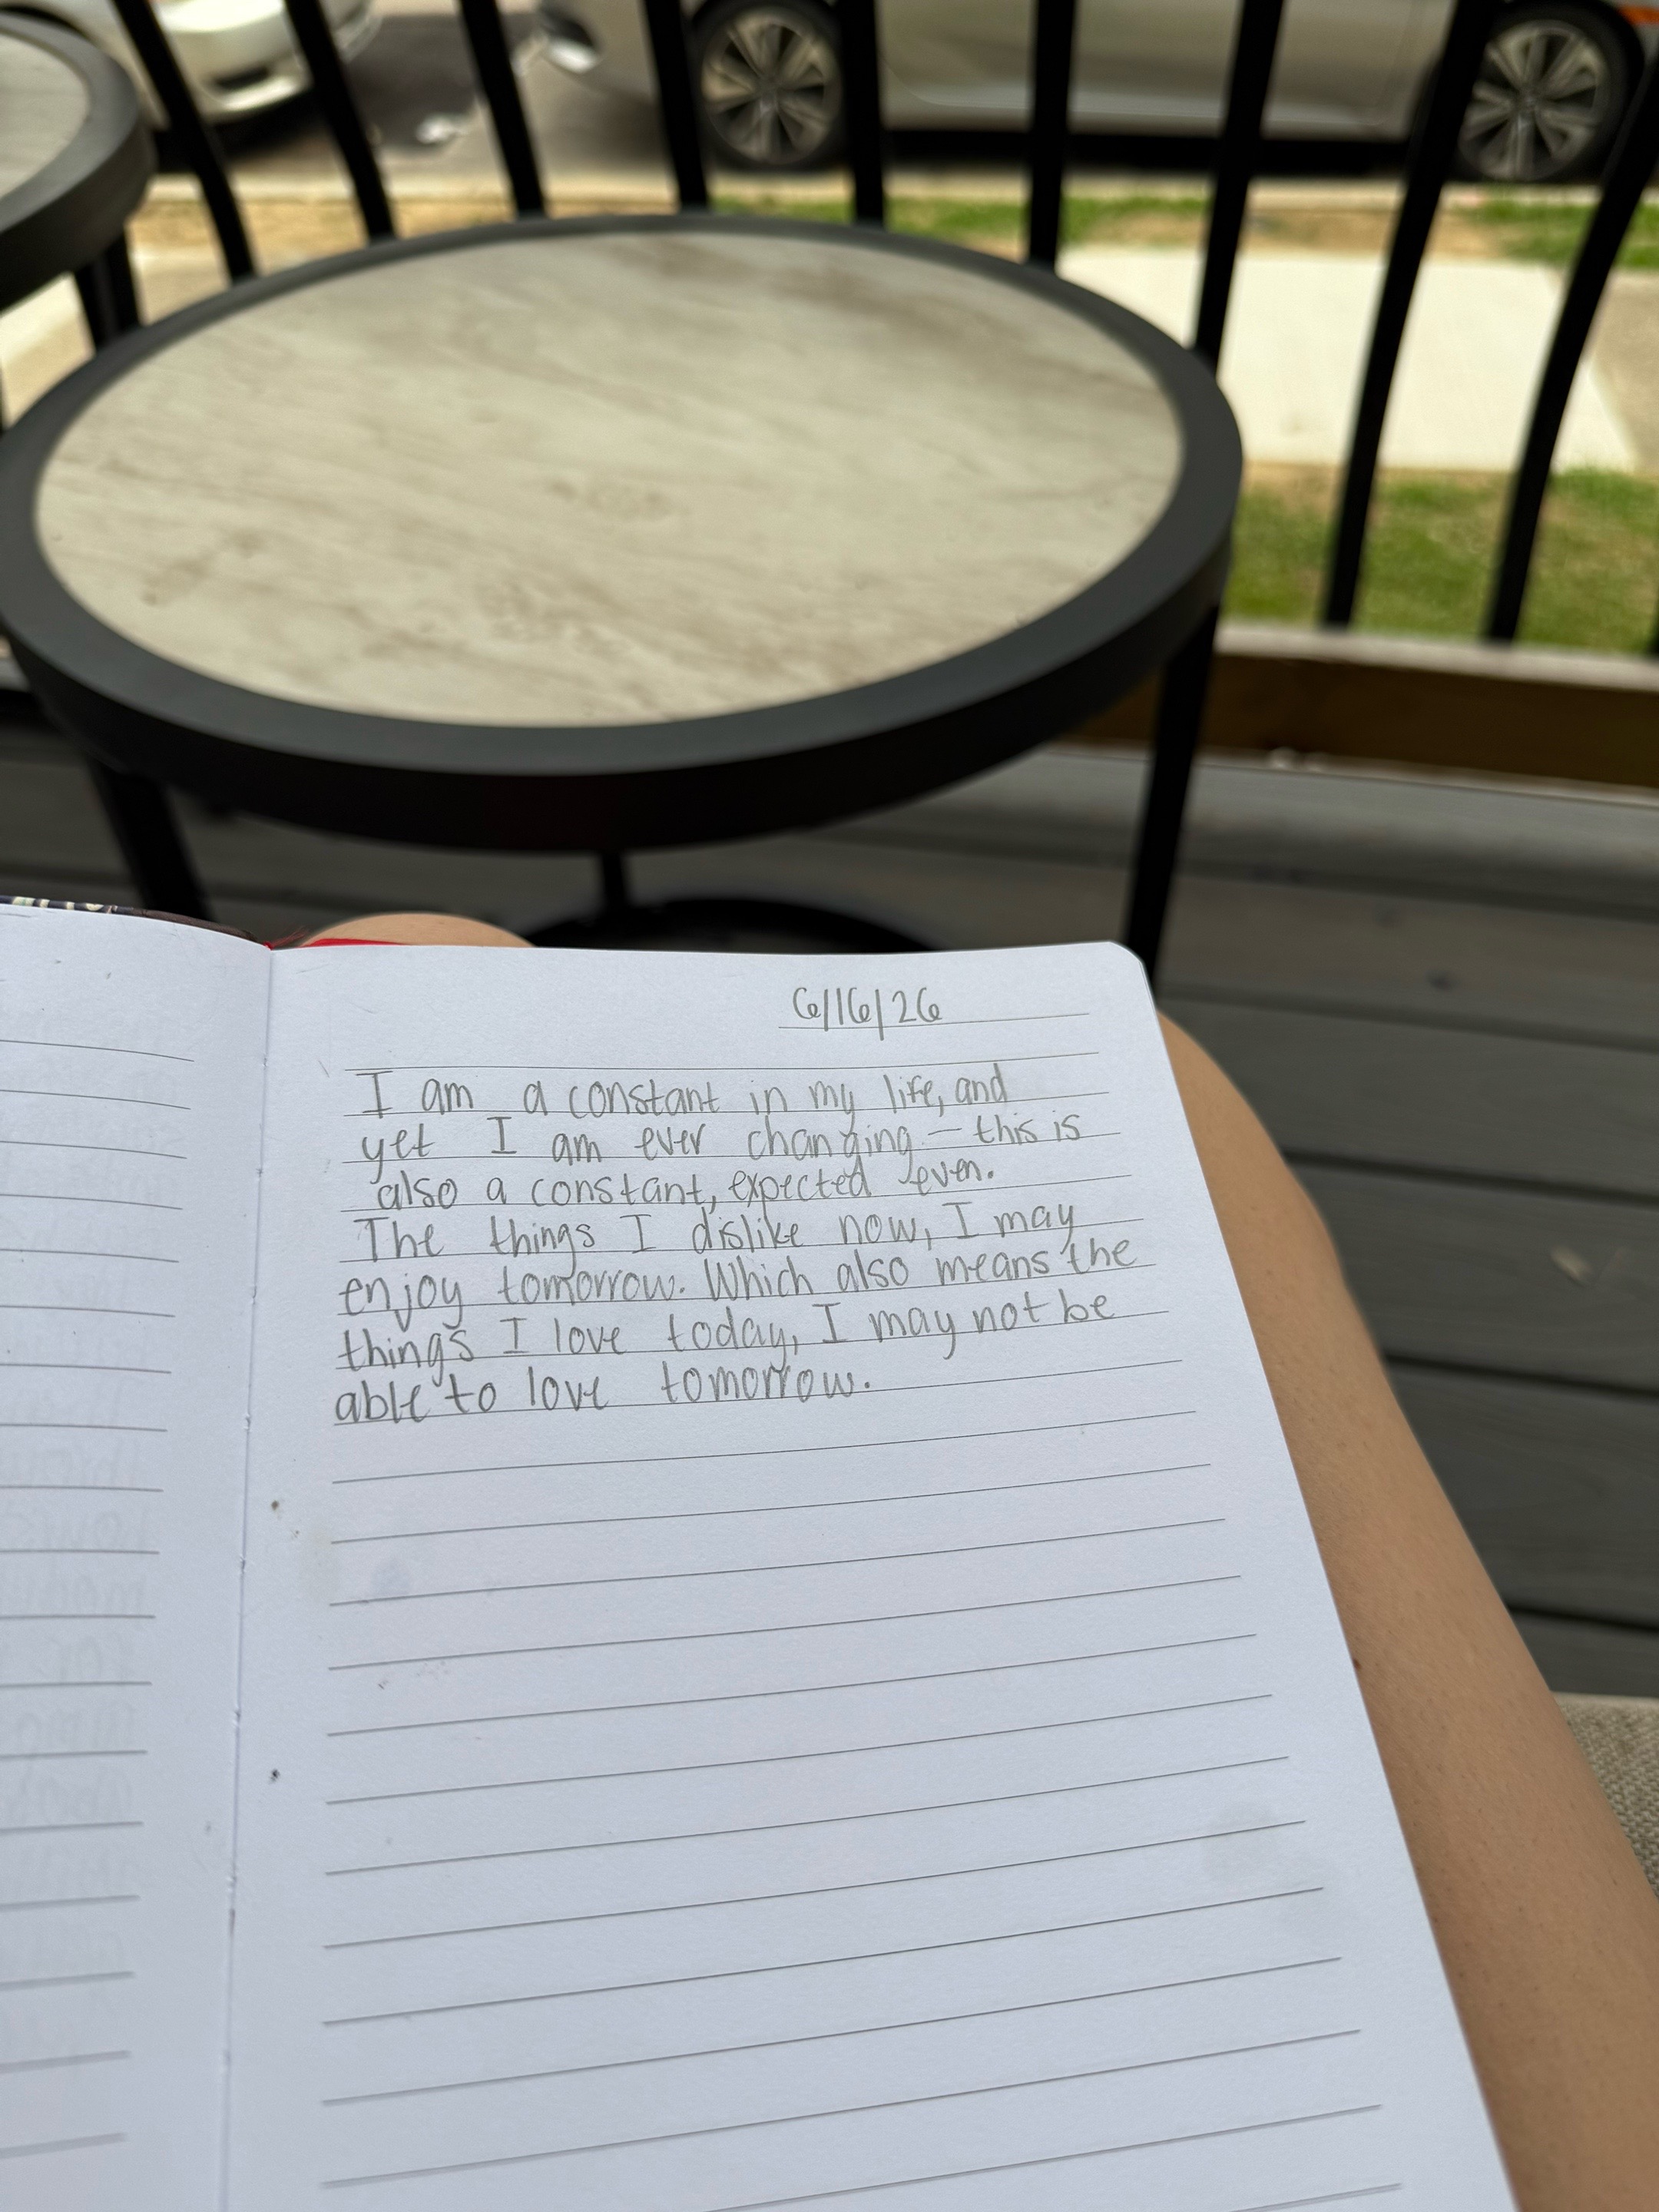 6/16/26
I am a constant in my life, and
yet I am ever changing — this is
also a constant, expected even.
The things I dislike now, I may
enjoy tomorrow. Which also means the
things I love today, I may not be
able to love tomorrow.